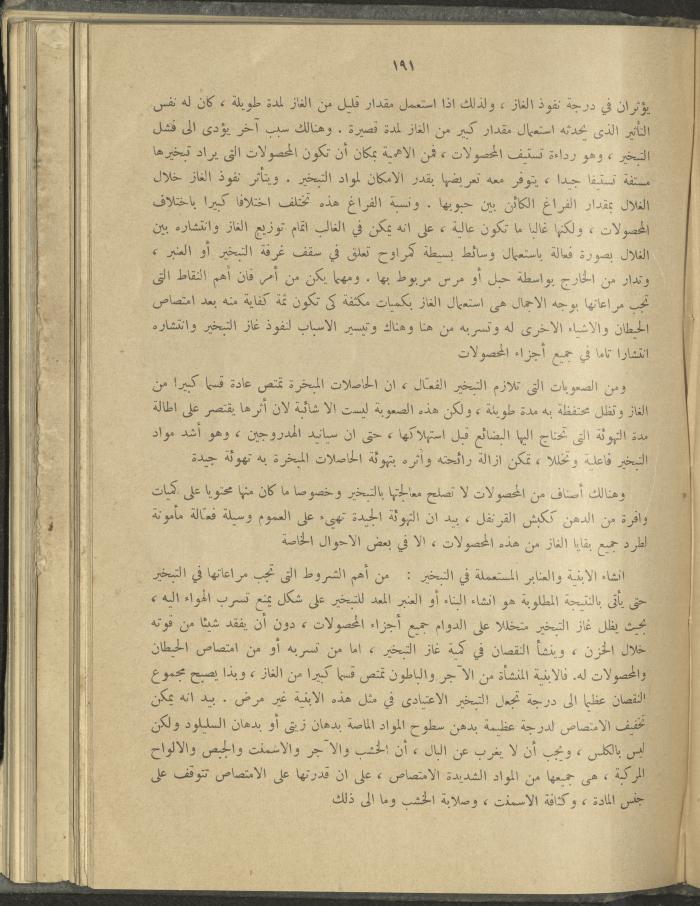 ١٩١
يؤثران في درجة نفوذ الغاز ، ولذلك اذا استعمل مقدار قليل من الغاز لمدة طويلة ، كان له نفس
التأثير الذي يحدثه استعمال مقدار كبير من الغاز لمدة قصيرة . وهنالك سبب آخر يؤدى الى فشل
التبخير ، وهو رداءة تستيف المحصولات ، فمن الاهمية بمكان أن تكون المحصولات التى يراد تبخيرها
مستفة تستيفا جيدا ، يتوفر معه تعريضها بقدر الامكان لمواد التبخير . ويتأثر نفوذ الغاز خلال
الغلال بمقدار الفراغ الكائن بين حبوبها . ونسبة الفراغ هذه تختلف اختلافا كبيرا باختلاف
المحصولات ، ولكنها غالبا ما تكون عالية ، على انه يمكن في الغالب اتمام توزيع الغاز وانتشاره بين
الغلال بصورة فعالة باستعمال وسائط بسيطة كمراوح تعلق في سقف غرفة التبخير أو العنبر ،
وتدار من الخارج بواسطة حبل أو مرس مربوط بها . ومهما يكن من أمر فان أهم النقاط التى
تجب مراعاتها بوجه الاجمال هى استعمال الغاز بكميات مكثفة كى تكون ثمة كفاية منه بعد امتصاص
الحيطان والاشياء الاخرى له وتسربه من هنا وهناك وتيسير الاسباب لنفوذ غاز التبخير وانتشاره
انتشارا تاما في جميع أجزاء المحصولات
ومن الصعوبات التى تلازم التبخير الفعال ، ان الحاصلات المبخرة تمتص عادة قسما كبيرا من
الغاز وتظل محتفظة به مدة طويلة ، ولكن هذه الصعوبة ليست الا شائبة لان أثرها يقتصر على اطالة
مدة التهوئة التى تحتاج اليها البضائع قبل استهلاكها ، حتى ان سيانيد الهدروجين ، وهو أشد مواد
التبخير فاعلية وتخللا ، تمكن ازالة رائحته وأثره بتهوئة الحاصلات المبخرة به تهوئة جيدة
وهنالك أصناف من المحصولات لا تصلح معالجتها بالتبخير وخصوصا ما كان منها محتويا على كميات
وافرة من الدهن ككبش القرنفل ، بيد ان التهوئة الجيدة تهيء على العموم وسيلة فعالة مأمونة
لطرد جميع بقايا الغاز من هذه المحصولات ، الا في بعض الاحوال الخاصة
انشاء الابنية والعنابر المستعملة في التبخير : من أهم الشروط التى تجب مراعاتها في التبخير
حتى يأتى بالنتيجة المطلوبة هو انشاء البناء أو العنبر المعد للتبخير على شكل يمنع تسرب الهواء اليه ،
بحيث يظل غاز التبخير متخللا على الدوام جميع أجزاء المحصولات ، دون أن يفقد شيئا من قوته
خلال الخزن ، وينشأ النقصان في كمية غاز التبخير ، اما من تسربه أو من امتصاص الحيطان
والمحصولات له. فالابنية المنشأة من الآجر والباطون تمتص قسما كبيرا من الغاز ، وبذا يصبح مجموع
النقصان عظيما الى درجة تجعل التبخير الاعتيادى في مثل هذه الابنية غير مرض . بيد انه يمكن
تخفيف الامتصاص لدرجة عظيمة بدهن سطوح المواد الماصة بدهان زيتى أو بدهان السليلود ولكن
ليس بالكلس ، ويجب أن لا يغرب عن البال ، أن الخشب والآجر والاسمنت والجبص والالواح
المركبة ، هى جميعها من المواد الشديدة الامتصاص ، على ان قدرتها على الامتصاص تتوقف على
جنس المادة ، وكثافة الاسمنت ، وصلابة الخشب وما الى ذلك